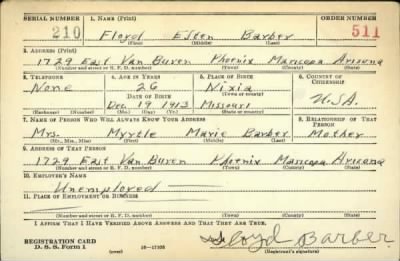 SERIAL NUMBER 1. NAME (Print) ORDER NUMBER
210 Floyd Esten Barber 511
(First) (Middle) (Last)
2. ADDRESS (Print)
1729 East Van Buren Phoenix Maricopa Arizona
(Number and street or R. F. D. number) (Town) (County) (State)
3. TELEPHONE 4. AGE IN YEARS 5. PLACE OF BIRTH 6. COUNTRY OF CITIZENSHIP
None 26 Nixia
DATE OF BIRTH (Town or county)
Dec 19 1913 Missouri U.S.A.
(Exchange) (Number) (Mo.) (Day) (Yr.) (State or country)
7. NAME OF PERSON WHO WILL ALWAYS KNOW YOUR ADDRESS 8. RELATIONSHIP OF THAT PERSON
Mrs. Myrtle Marie Barber Mother
(Mr., Mrs., Miss) (First) (Middle) (Last)
9. ADDRESS OF THAT PERSON
1729 East Van Buren Phoenix Maricopa Arizona
(Number and street or R. F. D. number) (Town) (County) (State)
10. EMPLOYER'S NAME
Unemployed
11. PLACE OF EMPLOYMENT OR BUSINESS
(Number and street or R. F. D. number) (Town) (County) (State)
I AFFIRM THAT I HAVE VERIFIED ABOVE ANSWERS AND THAT THEY ARE TRUE.
REGISTRATION CARD Floyd Barber
D. S. S. Form 1 (over) 16—17105 (Registrant's signature)